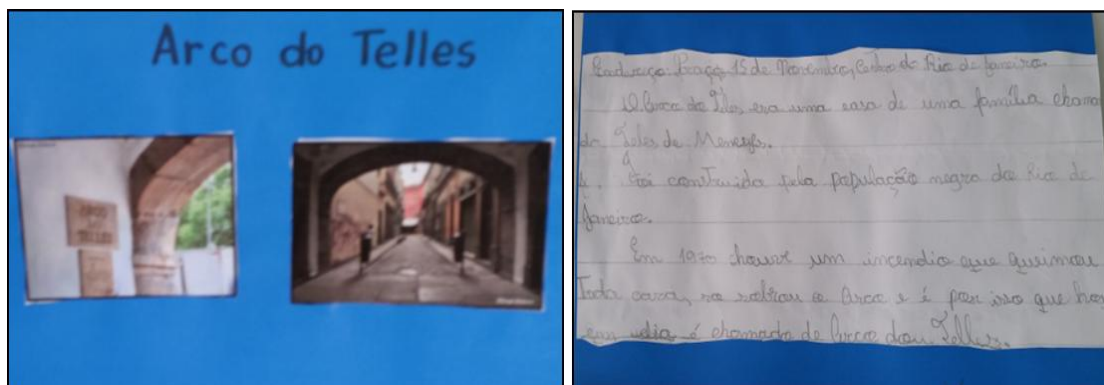 Arco do Telles
ARCO DO TELLES
Endereço: Praça 15 de Novembro, Centro do Rio de Janeiro.
O Arco do Teles era uma casa de uma família chama
da Teles de Meneses.
Foi construida pela população negra do Rio de
Janeiro.
Em houve um incendio que queimou
Toda casa, so sobrou o Arco e é por isso que hoje
em dia é chamado de Arco dou Telles.